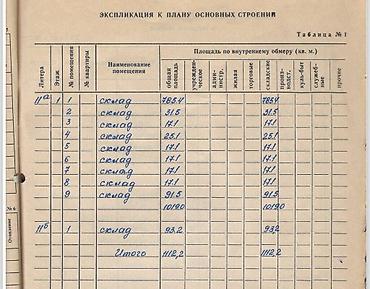 ЭКСПЛИКАЦИЯ К ПЛАНУ ОСНОВНЫХ СТРОЕНИЙ
Таблица № 1
Литера Этаж № помещения № квартиры Наименование помещения Площадь по внутреннему обмеру (кв. м.)
общая площадь учрежденческое админстр. жилая торговые складские производст. культ-быт служебные прочие
11а 1 1 склад 785.4 785.4
2 склад 31.5 31.5
3 склад 17.1 17.1
4 склад 25.1 25.1
5 склад 17.1 17.1
6 склад 17.1 17.1
7 склад 17.1 17.1
8 склад 17.1 17.1
9 склад 91.5 91.5
1019.0 1019.0
11б 1 склад 93,2 93,2
Итого 1112,2 1112,2
№ 6